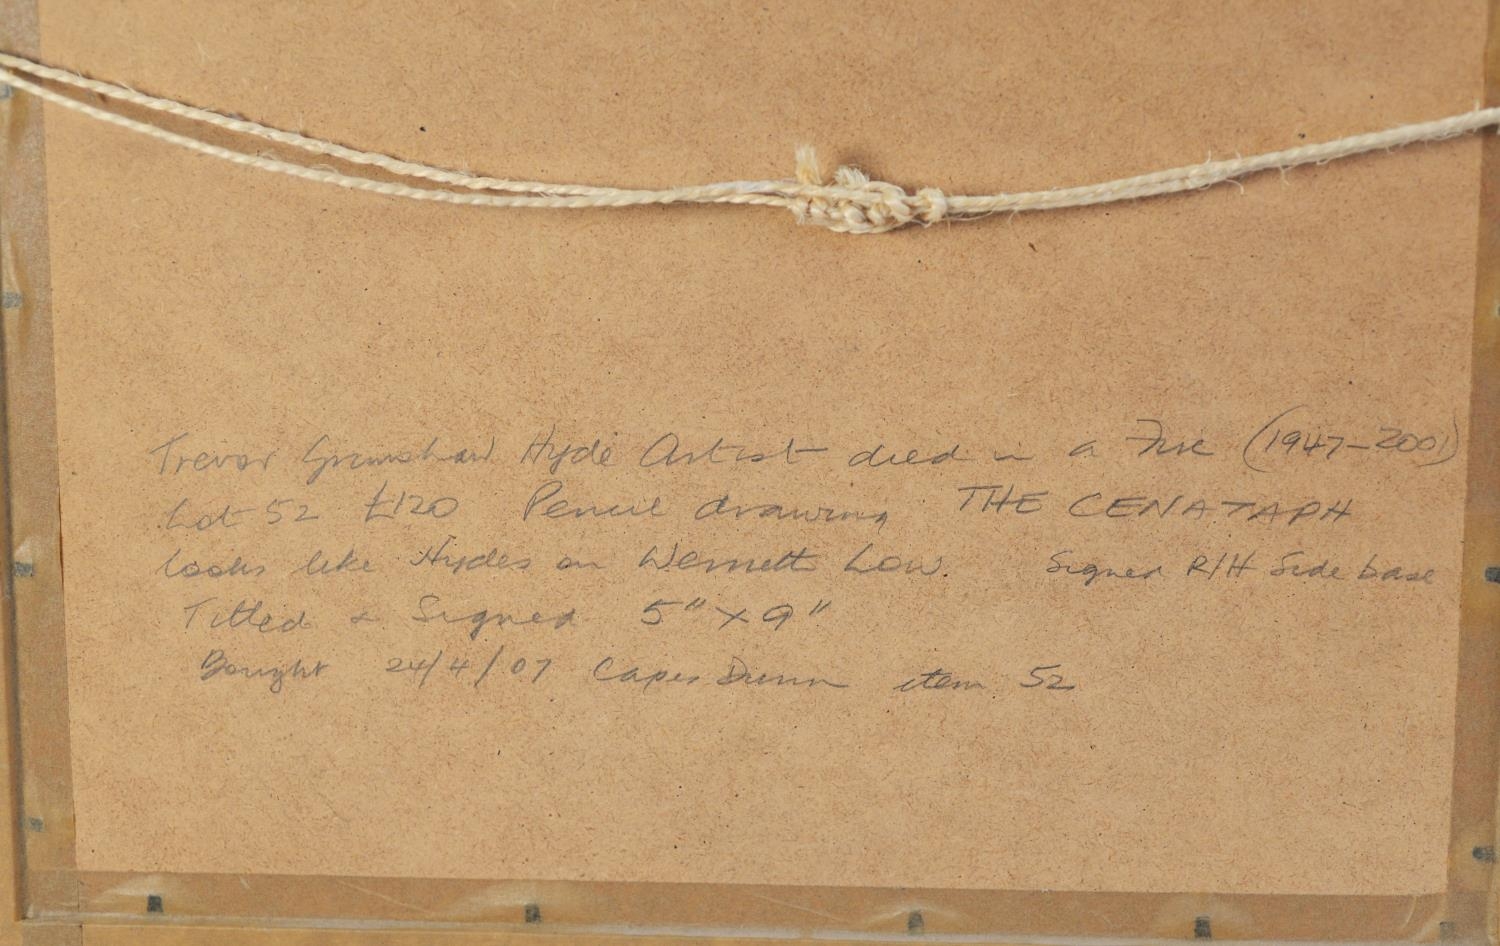 Trevor Grimshaw Hyde Artist died in a Fire (1947-2001)
Lot 52 £120 Pencil drawing THE CENATAPH
looks like Hydes on Werneth Low. Signed R/H Side base
Titled & Signed 5" x 9"
Bought 24/4/07 Capes Dunn item 52